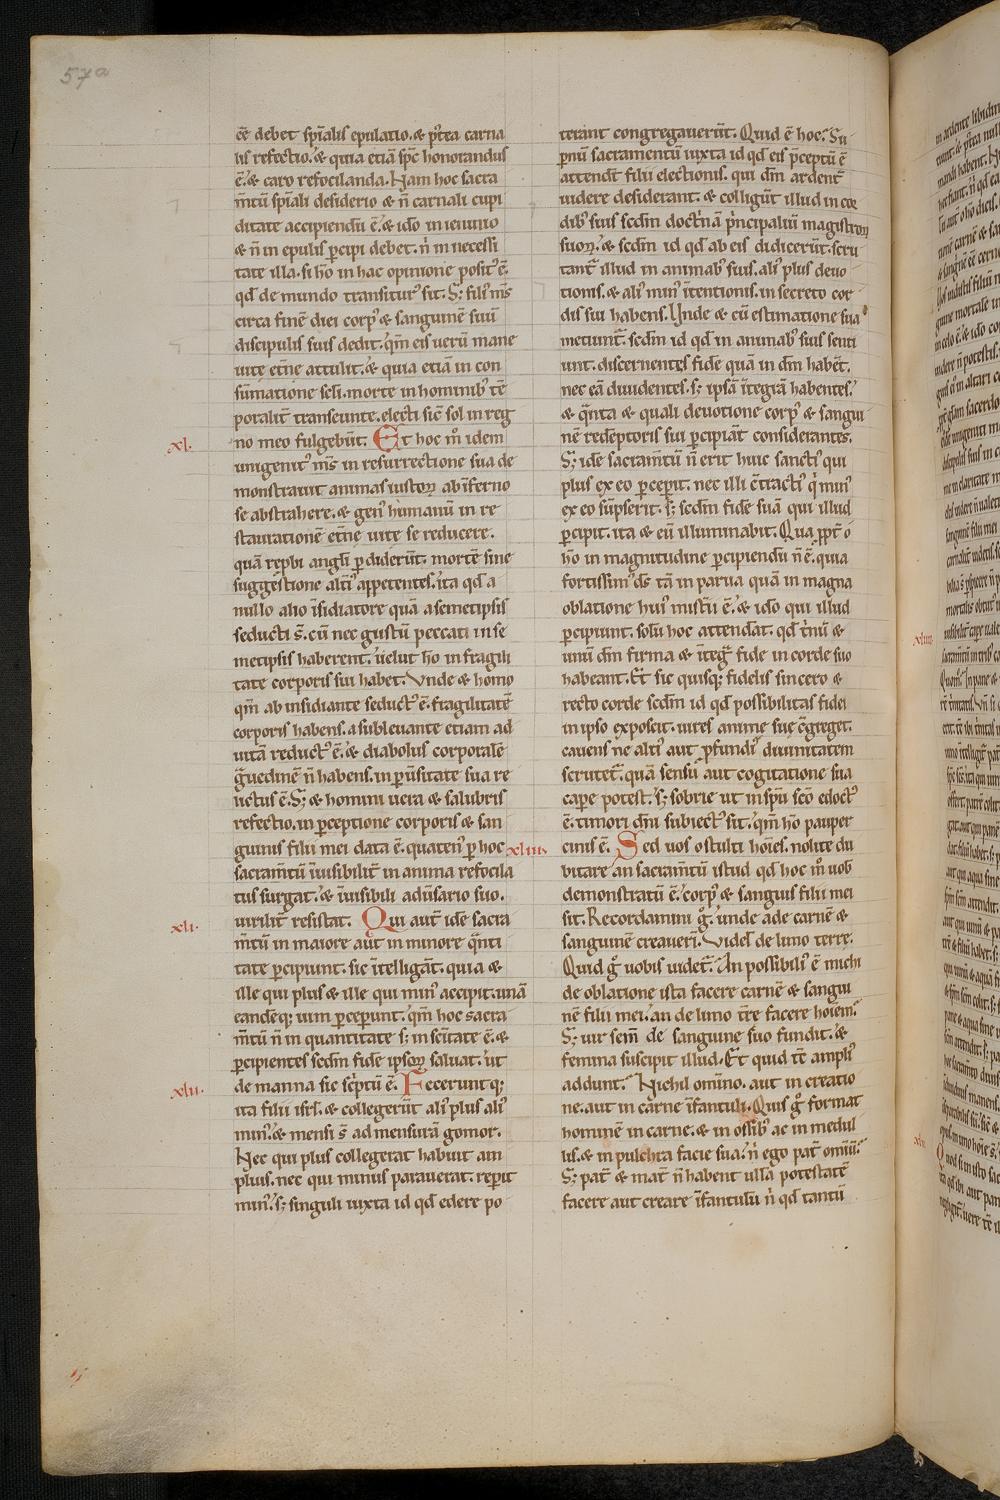 57a
ēē debet sp̄ialis epulatio. & p̄tea carna
lis refectio. & quia etiā sp̄c honorandus
ē. & caro refocilanda. Nam hoc sacra
m̄tū sp̄iali desiderio & n̄ carnali cupi
ditate accipiendū ē. & id̄o in ieiunio
& n̄ in epulis p̄cipi debet. n̄ in necessi
tate illa. si h̄o in hac opinione posit᾽ ē.
qd̄ de mundo transitur᾽ sit. S; fili᾽ m̄s
circa finē diei corp᾽ & sanguinē suū
discipulis suis dedit. q̄m eis uerū mane
uite et̄ne attulit. & quia etiā in con
sūmatione scl̄i. morte in hominib᾽ tē
poralit̄ transeunte. electi sic̄ sol in reg
xl. no meo fulgebūt. Et hoc m̊ idem
unigenit᾽ m̄s in resurrectione sua de
monstrauit animas iustoꝝ ab īferno
se abstrahere. & gen᾽ humanū in re
stauratione et̄ne uite se reducere.
quā rep̄bi angl̄i ꝑdiderūt. mortē sine
suggestione alt̄i᾽ appetentes. ita qd̄ a
nullo alio īsidiatore quā a semetipsis
seducti s̄. cū nec gustū peccati in se
metipsis haberent. uelut h̄o in fragili
tate corporis sui habet. Vnde & homo
q̄m ab insidiante seduct᾽ ē. fragilitatē
corporis habens. a subleuante etiam ad
uitā reduct᾽ ē. & diabolus corporalē
g̃uedinē n̄ habens. in ꝑūsitate sua re
lictus ē. S; & homini uera & salubris
refectio. in ꝑceptione corporis & san
guinis filii mei data ē. quaten᾽ ꝑ hoc
sacram̄tū īuisibilit̄ in anima refocila
tus surgat. & īuisibili adūsario suo.
xli. uirilit̄ resistat. Qui aut̄ idē sacra
m̄tū in maiore aut̄ in minore q̄nti
tate ꝑcipiunt. sic ītelligāt. quia &
ille qui plus & ille qui min᾽ accipit. unā
eandēq; uim ꝑceperunt. q̄m hoc sacra
m̄tū n̄ in quantitate s; in sc̄itate ē. &
ꝑcipientes scd̄m fidē ipsoꝝ saluat. ut
xlii. de manna sic sc̄ptū ē. Feceruntq;
ita filii isrl̄. & collegerūt ali᾽ plus ali᾽
min᾽. & mensi s̄ ad mensurā gomor.
Nec qui plus collegerat habuit am
plius. nec qui minus parauerat. repit
min᾽. s; singuli iuxta id qd̄ edere po
terant congregauerūt. Quid ē hoc? Su
p̄nū sacramentū iuxta id qd̄ eis p̄ceptū ē
attendūt filii electionis. qui dm̄ ardent̄
uidere desiderant. & colligūt illud in cor
dib᾽ suis scd̄m doct̄nā p̄ncipaliū magistroꝝ
suoꝝ. & scd̄m id qd̄ ab eis didicerūt. scru
tant̄ illud in animab᾽ suis. ali᾽ plus deuo
tionis. & ali᾽ min᾽ ītentionis. in secreto cor
dis sui habens. Unde & cū estimatione sua
metiunt̄. scd̄m id qd̄ in animab᾽ suis senti
unt. discernentes fidē quā in dm̄ habēt.
nec eā diuidentes. s; ipsā ītegrā habentes.
& q̄nta & quali deuotione corp᾽ & sangui
nē redēptoris sui ꝑcipiāt considerantes.
S; idē sacram̄tū n̄ erit huic sancti᾽ qui
plus ex eo ꝑceperit. nec illi ēt̄racti᾽ q̇ min᾽
ex eo sūpserit. s; scd̄m fidē suā qui illud
ꝑcipit. ita & eū illuminabit. Qua ꝓpt̄ o
h̄o in magnitudine ꝑcipiendū n̄ ē. quia
fortissim᾽ ds̄ tā in parua quā in magna
oblatione hui᾽ mist̄ii ē. & id̄o qui illud
ꝑcipiunt. solū hoc attendāt. qd̄ t̄nū &
unū dm̄ firma & īteg̃ fide in corde suo
habeant. Et sic quisq; fidelis sincero &
recto corde scd̄m id qd̄ possibilitas fidei
in ipso exposcit. uires anime suę ꝯgreget.
cauens ne alti᾽ aut ꝓfundi᾽ diuinitatem
scrutet̄. quā sensū aut cogitatione sua
cape potest. s; sobrie ut in sp̄u sc̄o edoct᾽
ē. timori dn̄i subiect᾽ sit. q̄m h̄o pauper
xliii. cinis ē. Sed uos o stulti hoīes. nolite du
bitare. an sacram̄tū istud qd̄ hoc m̊ uob̄
demonstratū ē. corp᾽ & sanguis filii mei
sit. Recordamini g̊. unde ade carnē &
sanguinē creauerī. Videl̄ de limo terre.
Quid g̊ uobis uidet̄. An possibili᾽ ē michi
de oblatione ista facere carnē & sangui
nē filii mei. an de limo t̄re facere hoīem?
S; uir sem̄ de sanguine suo fundit. &
femina suscipit illud. Et quid tē ampli᾽
addunt? Nichil omīno. aut in creatio
ne. aut in carne īfantuli. Quis g̊ format
hominē in carne. & in ossib᾽ ac in medul
lis. & in pulchra facie sua. n̄ ego pat̄ omiū?
S; pat̄ & mat̄ n̄ habent ullā potestatē
facere aut creare īfantulū n̄ qd̄ tantū